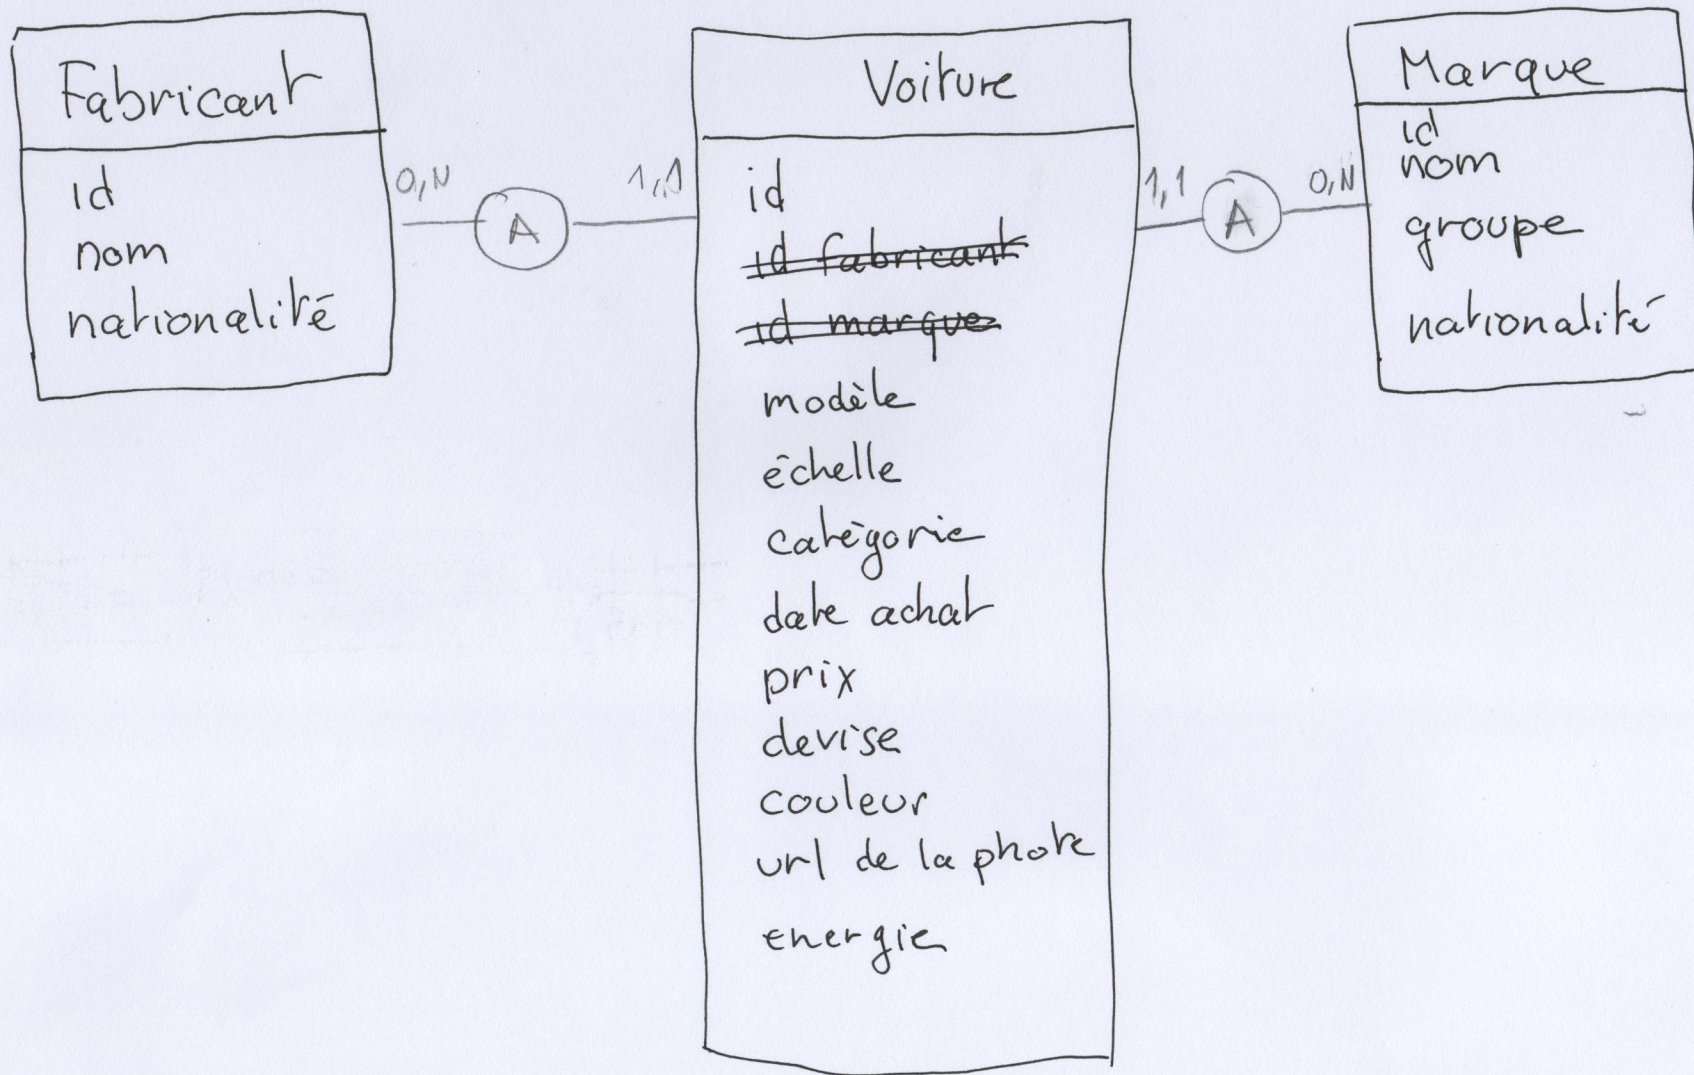 Fabricant
id
nom
nationalité
0,N
A
1,1
Voiture
id
id fabricant
id marque
modèle
échelle
catégorie
date achat
prix
devise
couleur
url de la photo
energie
1,1
A
0,N
Marque
id
nom
groupe
nationalité